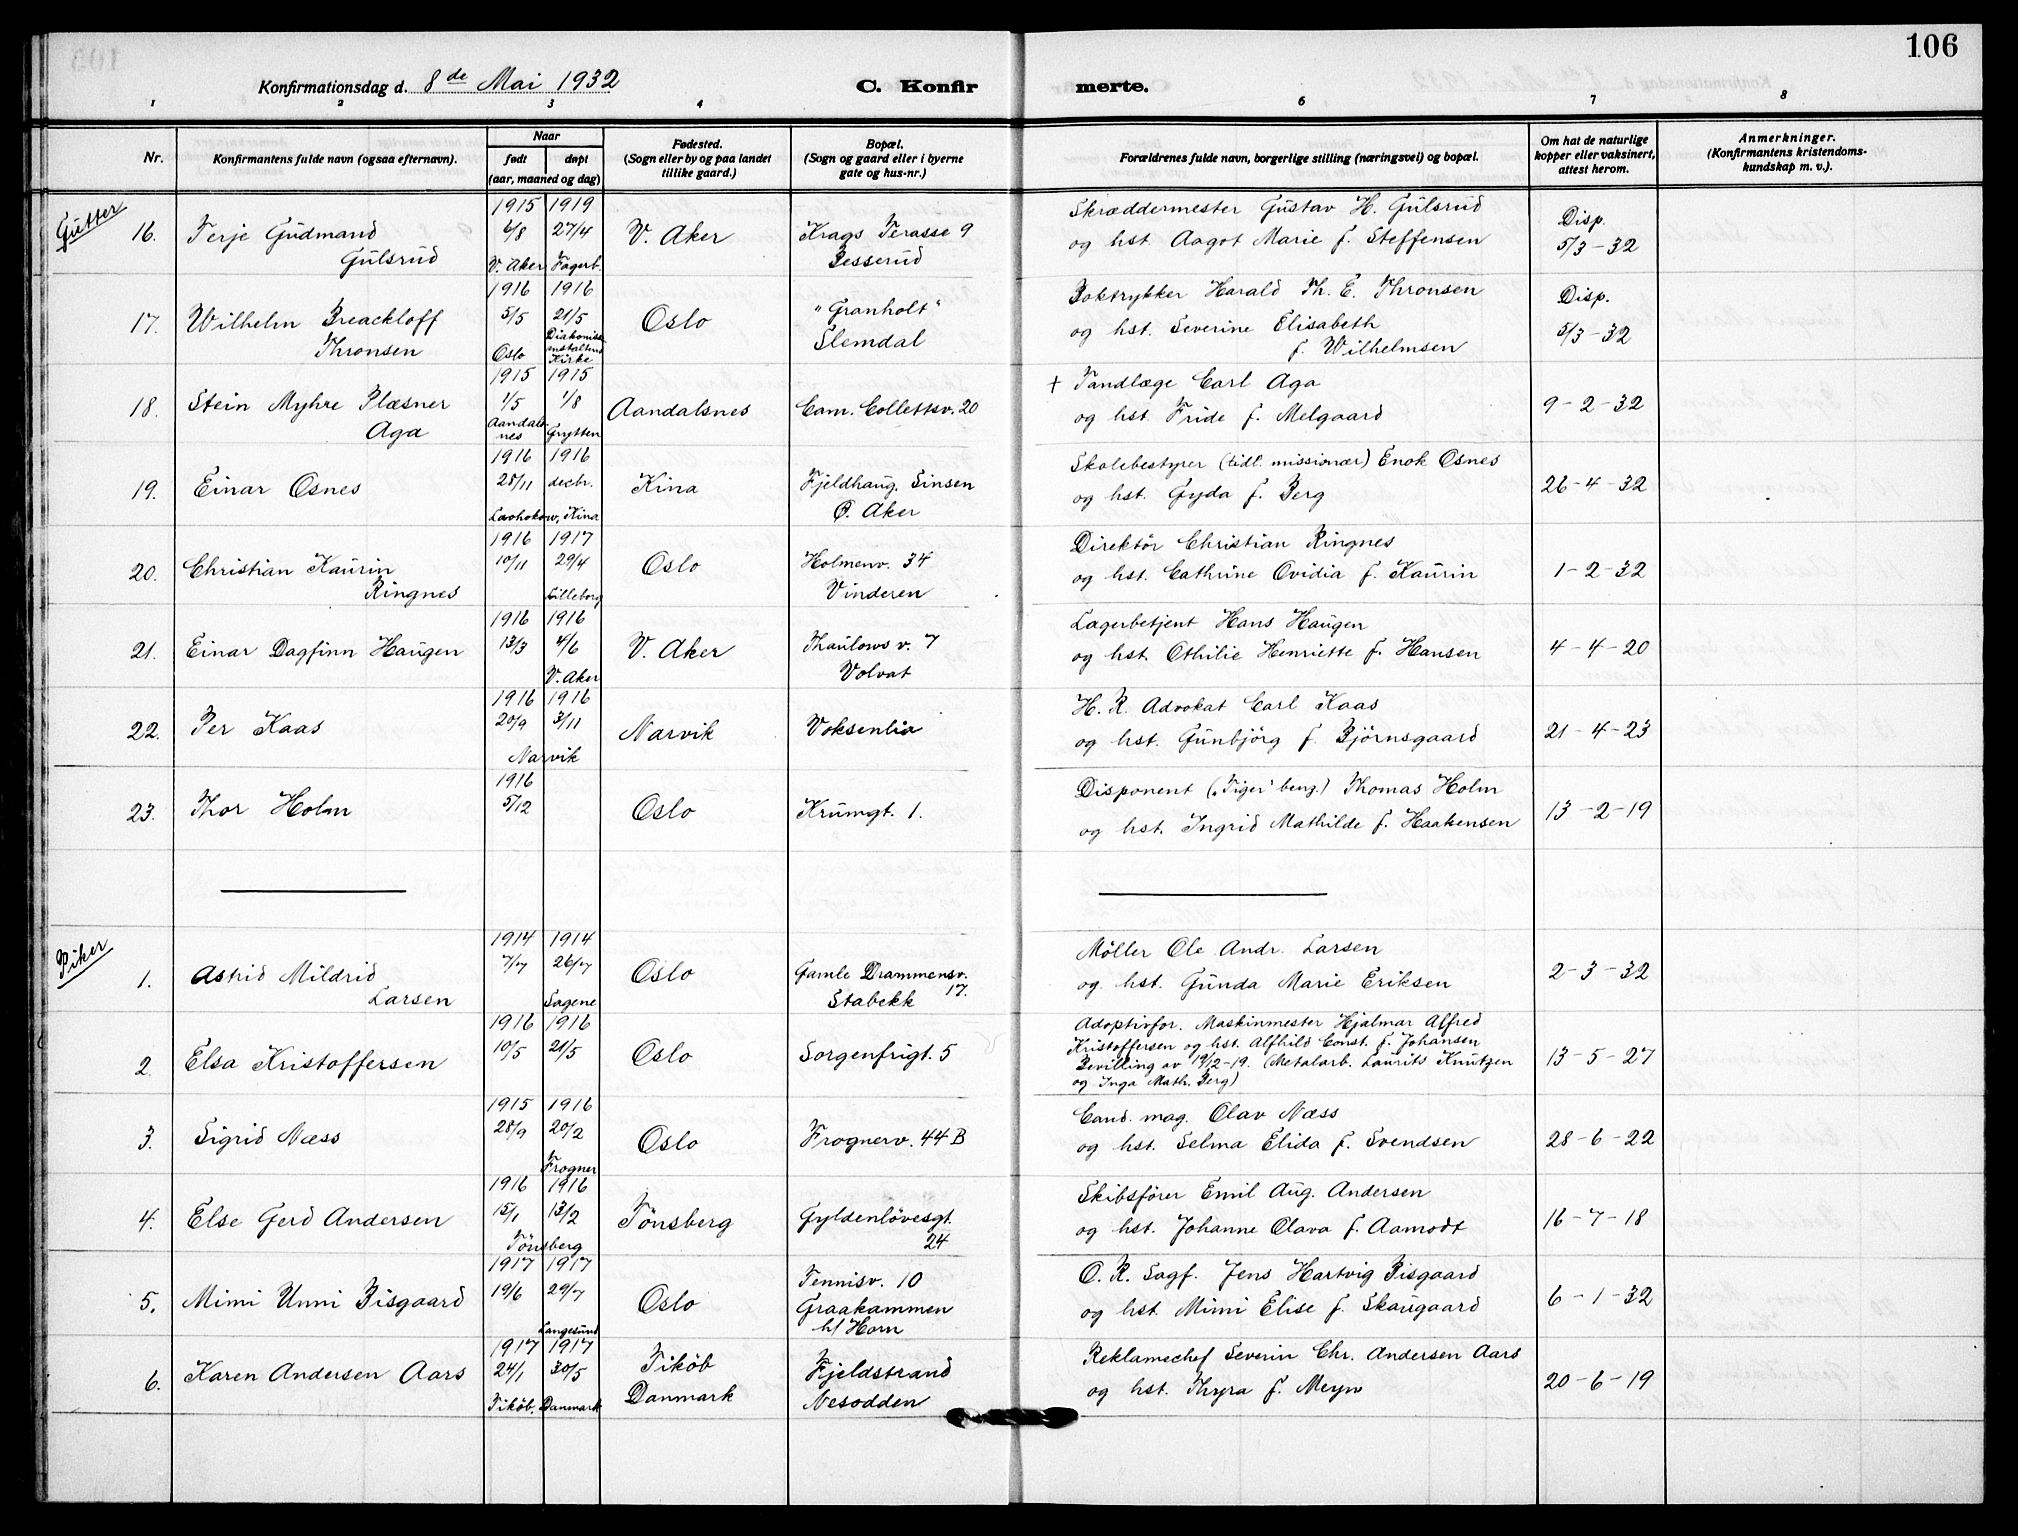 106
Konfirmationsdag d. 8de Mai 1932 C. Konfirmerte.
1 2 3 4 5 6 7 8
Nr. Konfirmantens fulde navn (ogsaa efternavn). Naar født døpt (aar, maaned og dag) Fødested. (Sogn eller by og paa landet tillike gaard.) Bopæl. (Sogn og gaard eller i byerne gate og hus-nr.) Forældrenes fulde navn, borgerlige stilling (næringsvei) og bopæl. Om hat de naturlige kopper eller vaksinert, attest herom. Anmerkninger. (Konfirmantens kristendoms-kundskap m. v.).
Gutter
1915 1919 Skræddermester Gustav H. Gulsrud Disp.
16. Terje Gudmand 6/8 27/4 V. Aker Krags Terasse 9 og hst. Aagot Marie f. Steffensen 5/3-32
Gulsrud V. Aker Fagerb. Besserud
1916 1916 Boktrykker Harald Th. E. Thronsen Disp.
17. Wilhelm Breackloff 5/5 21/5 Oslo "Granholt" og hst. Severine Elisabeth 5/3-32
Thronsen Oslo Diakonissanstaltens Kirke Slemdal f. Wilhelmsen
1915 1915 + Tandlæge Carl Aga
18. Stein Myhre Plæsner 1/5 1/8 Aandalsnes Cam. Collettsv. 20 og hst. Fride f. Melgaard 9-2-32
Aga Aandalsnes Grytten
1916 1916 Skolebestyrer (tidl. missionær) Enok Osnes
19. Einar Osnes 28/11 decbr. Kina Fjeldhaug, Sinsen og hst. Gyda f. Berg 26-4-32
Laohokow, Kina Ø. Aker
1916 1917 Direktör Christian Ringnes
20. Christian Kaurin 10/11 29/4 Oslo Holmenv. 34 og hst. Cathrine Ovidia f. Kaurin 1-2-32
Ringnes Lilleborg Vinderen
1916 1916 Lagerbetjent Hans Haugen
21. Einar Dagfinn Haugen 13/3 4/6 V. Aker Thaulows v. 7 og hst. Othilie Henriette f. Hansen 4-4-20
V. Aker Volvat
1916 1916 H. R. Advokat Carl Kaas
22. Per Kaas 20/9 3/11 Narvik Voksenlia og hst. Gunbjörg f. Björnsgaard 21-4-23
Narvik
1916 Disponent ("Tiger" beng.) Thomas Holm
23. Thor Holm 5/12 Oslo Krumgt. 1. og hst. Ingrid Mathilde f. Haakensen 13-2-19
Piker
1914 1914 Möller Ole Andr. Larsen
1. Astrid Mildrid 7/7 26/7 Oslo Gamle Drammensv. 17. og hst. Gunda Marie Eriksen 2-3-32
Larsen Sagene Stabekk
1916 1916 Adoptivfor. Maskinmester Hjalmar Alfred
2. Elsa Kristoffersen 10/5 21/5 Oslo Sorgenfrigt. 5 Kristoffersen og hst. Alfhild Const. f. Johansen 13-5-27
Bevilling av 19/2-19. (Metalarb. Laurits Knutzen
og Inga Math. Berg)
1915 1916 Cand. mag. Olav Næss
3. Sigrid Næss 28/9 20/2 Oslo Frognerv. 44 B og hst. Selma Elida f. Svendsen 28-6-22
Frogner
1916 1916 Skibsförer Emil Aug. Andersen
4. Else Gerd Andersen 15/1 13/2 Tönsberg Gyldenlövesgt. 24 og hst. Johanne Olava f. Aamodt 16-7-18
Tönsberg
1917 1917 O. R. Sagf. Jens Hartvig Bisgaard
5. Mimi Unni Bisgaard 19/6 29/7 Oslo Tennisv. 10 og hst. Mimi Elise f. Skaugaard 6-1-32
Langesund Graakammen
h/ Horn
1917 1917 Reklamechef Severin Chr. Andersen Aars
6. Karen Andersen Aars 24/1 30/5 Tiköb Fjeldstrand og hst. Thyra f. Meyn 20-6-19
Tiköb. Danmark Danmark Nesodden